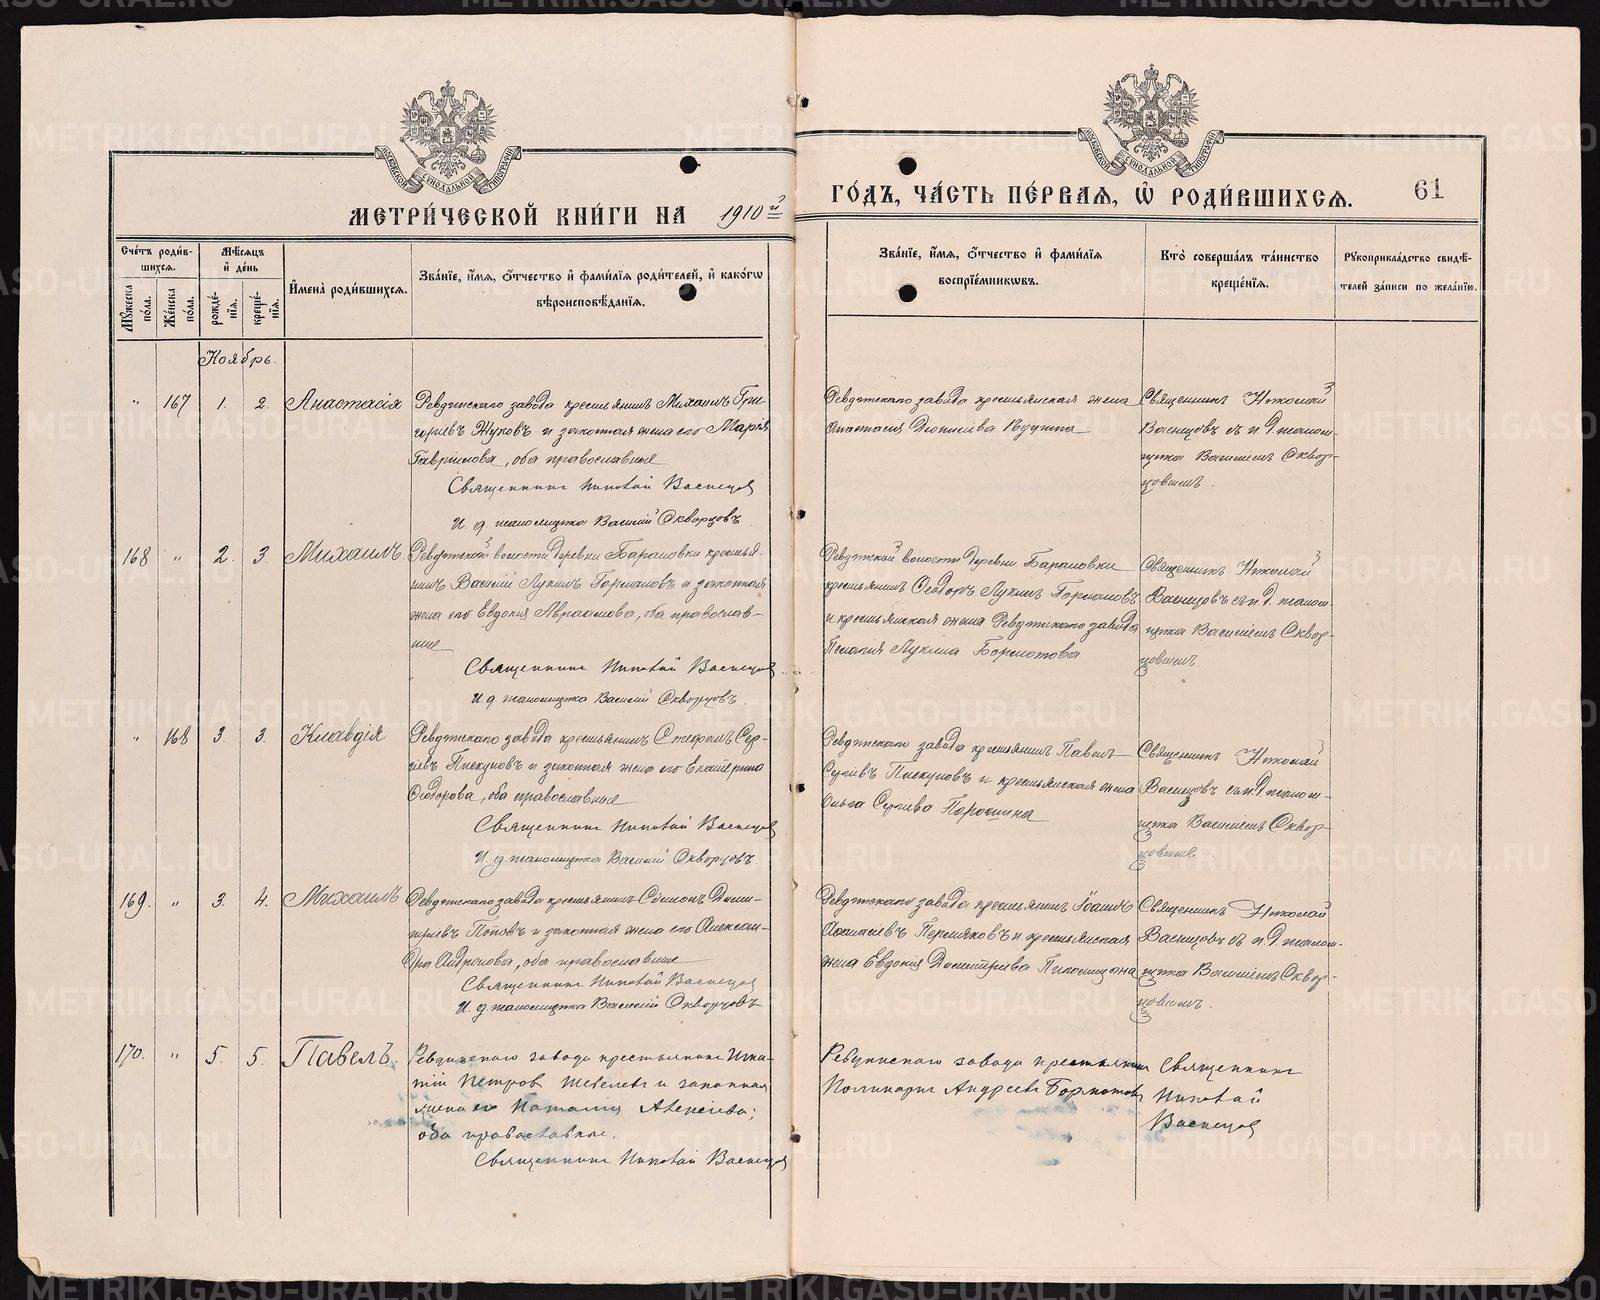 МЕТРИ́ЧЕСКОЙ КНИ́ГИ НА 1910й
ГО́ДЪ, ЧА́СТЬ ПЕ́РВАЯ, Ѡ҆ РОДИ́ВШИХСЯ.
61
Сче́тъ роди́в-
шихся.
Му́жеска по́ла.
Же́нска по́ла.
Мѣ́сяцъ
и҆ де́нь
рожде́-
нїя.
креще́-
нїя.
И҆мена̀ роди́вшихся.
Зва́нїе, и҆́мя, ѻ҆́тчество и҆ фами́лїя роди́телей, и҆ како́гѡ
вѣроисповѣ́данїя.
Зва́нїе, и҆́мя, ѻ҆́тчество и҆ фами́лїя
воспрїе́мникѡвъ.
Кто̀ соверша́лъ та́инство
креще́нїя.
Рꙋкоприкла́дство свидѣ́-
телей за́писи по жела́нїю.
Ноябрь.
" 167 1. 2. Анастасія
Ревдинскаго завода крестьянинъ Михаилъ Гри-
горьевъ Жуковъ и законная жена его Марія
Гаврилова, оба православные
Священникъ Николай Васнецов
И. д. псаломщика Василій Скворцовъ
Ревдинскаго завода крестьянская жена
Анастасия Дионисіева
Священникъ Николай
Васнецовъ съ и. д. псалом-
щика Василіемъ Сквор-
цовымъ.
168 " 2. 3. Михаилъ
Ревдинской волости деревни Барановки крестья-
нинъ Василій Лукинъ и законная
жена его Евдокія Авраамова, оба православ-
ные
Священникъ Николай Васнецов
И. д. псаломщика Василій Скворцовъ.
Ревдинской волости деревни Барановки
крестьянинъ Ѳеодоръ Лукинъ
и крестьянская жена Ревдинскаго завода
Пелагія Лукина Бормотова
Священникъ Николай
Васнецовъ съ и. д. псалом-
щика Василіемъ Сквор-
цовымъ
" 168 3. 3. Клавдія
Ревдинскаго завода крестьянинъ Стефанъ Сер-
гіевъ Пискуновъ и законная жена его Екатерина
Ѳеодорова, оба православные
Священникъ Николай Васнецов
И. д. псаломщика Василій Скворцовъ.
Ревдинскаго завода крестьянинъ Павелъ
Сергіевъ Пискуновъ и крестьянская жена
Ольга Сергіева Порошина
Священникъ Николай
Васнецовъ съ и. д. псалом-
щика Василіемъ Сквор-
цовымъ
169. " 3. 4. Михаилъ
Ревдинскаго завода крестьянинъ Симеонъ Дими-
тріевъ Поповъ и законная жена его Алексан-
дра Андронова, оба православные
Священникъ Николай Васнецов
И. д. псаломщика Василій Скворцовъ
Ревдинскаго завода крестьянинъ Іоаннъ
Пермяковъ и крестьянская
жена Евдокія Димитріева
Священникъ Николай
Васнецовъ съ и. д. псалом-
щика Василіемъ Сквор-
цовымъ.
170. " 5. 5. Павелъ.
Ревдинскаго завода крестьянинъ Игна-
тій Петров Шевелев и законная
жена его Наталія
оба православные.
Священникъ Николай Васнецов
Ревдинскаго завода крестьянин
Андреев Бормотов
Священникъ
Николай
Васнецов
METRIKI.GASO-URAL.RU